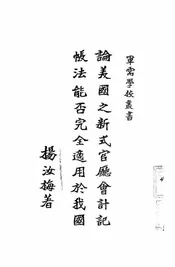 軍需學校叢書
論美國之新式官廳會計記
帳法能否完全適用於我國
楊汝梅著